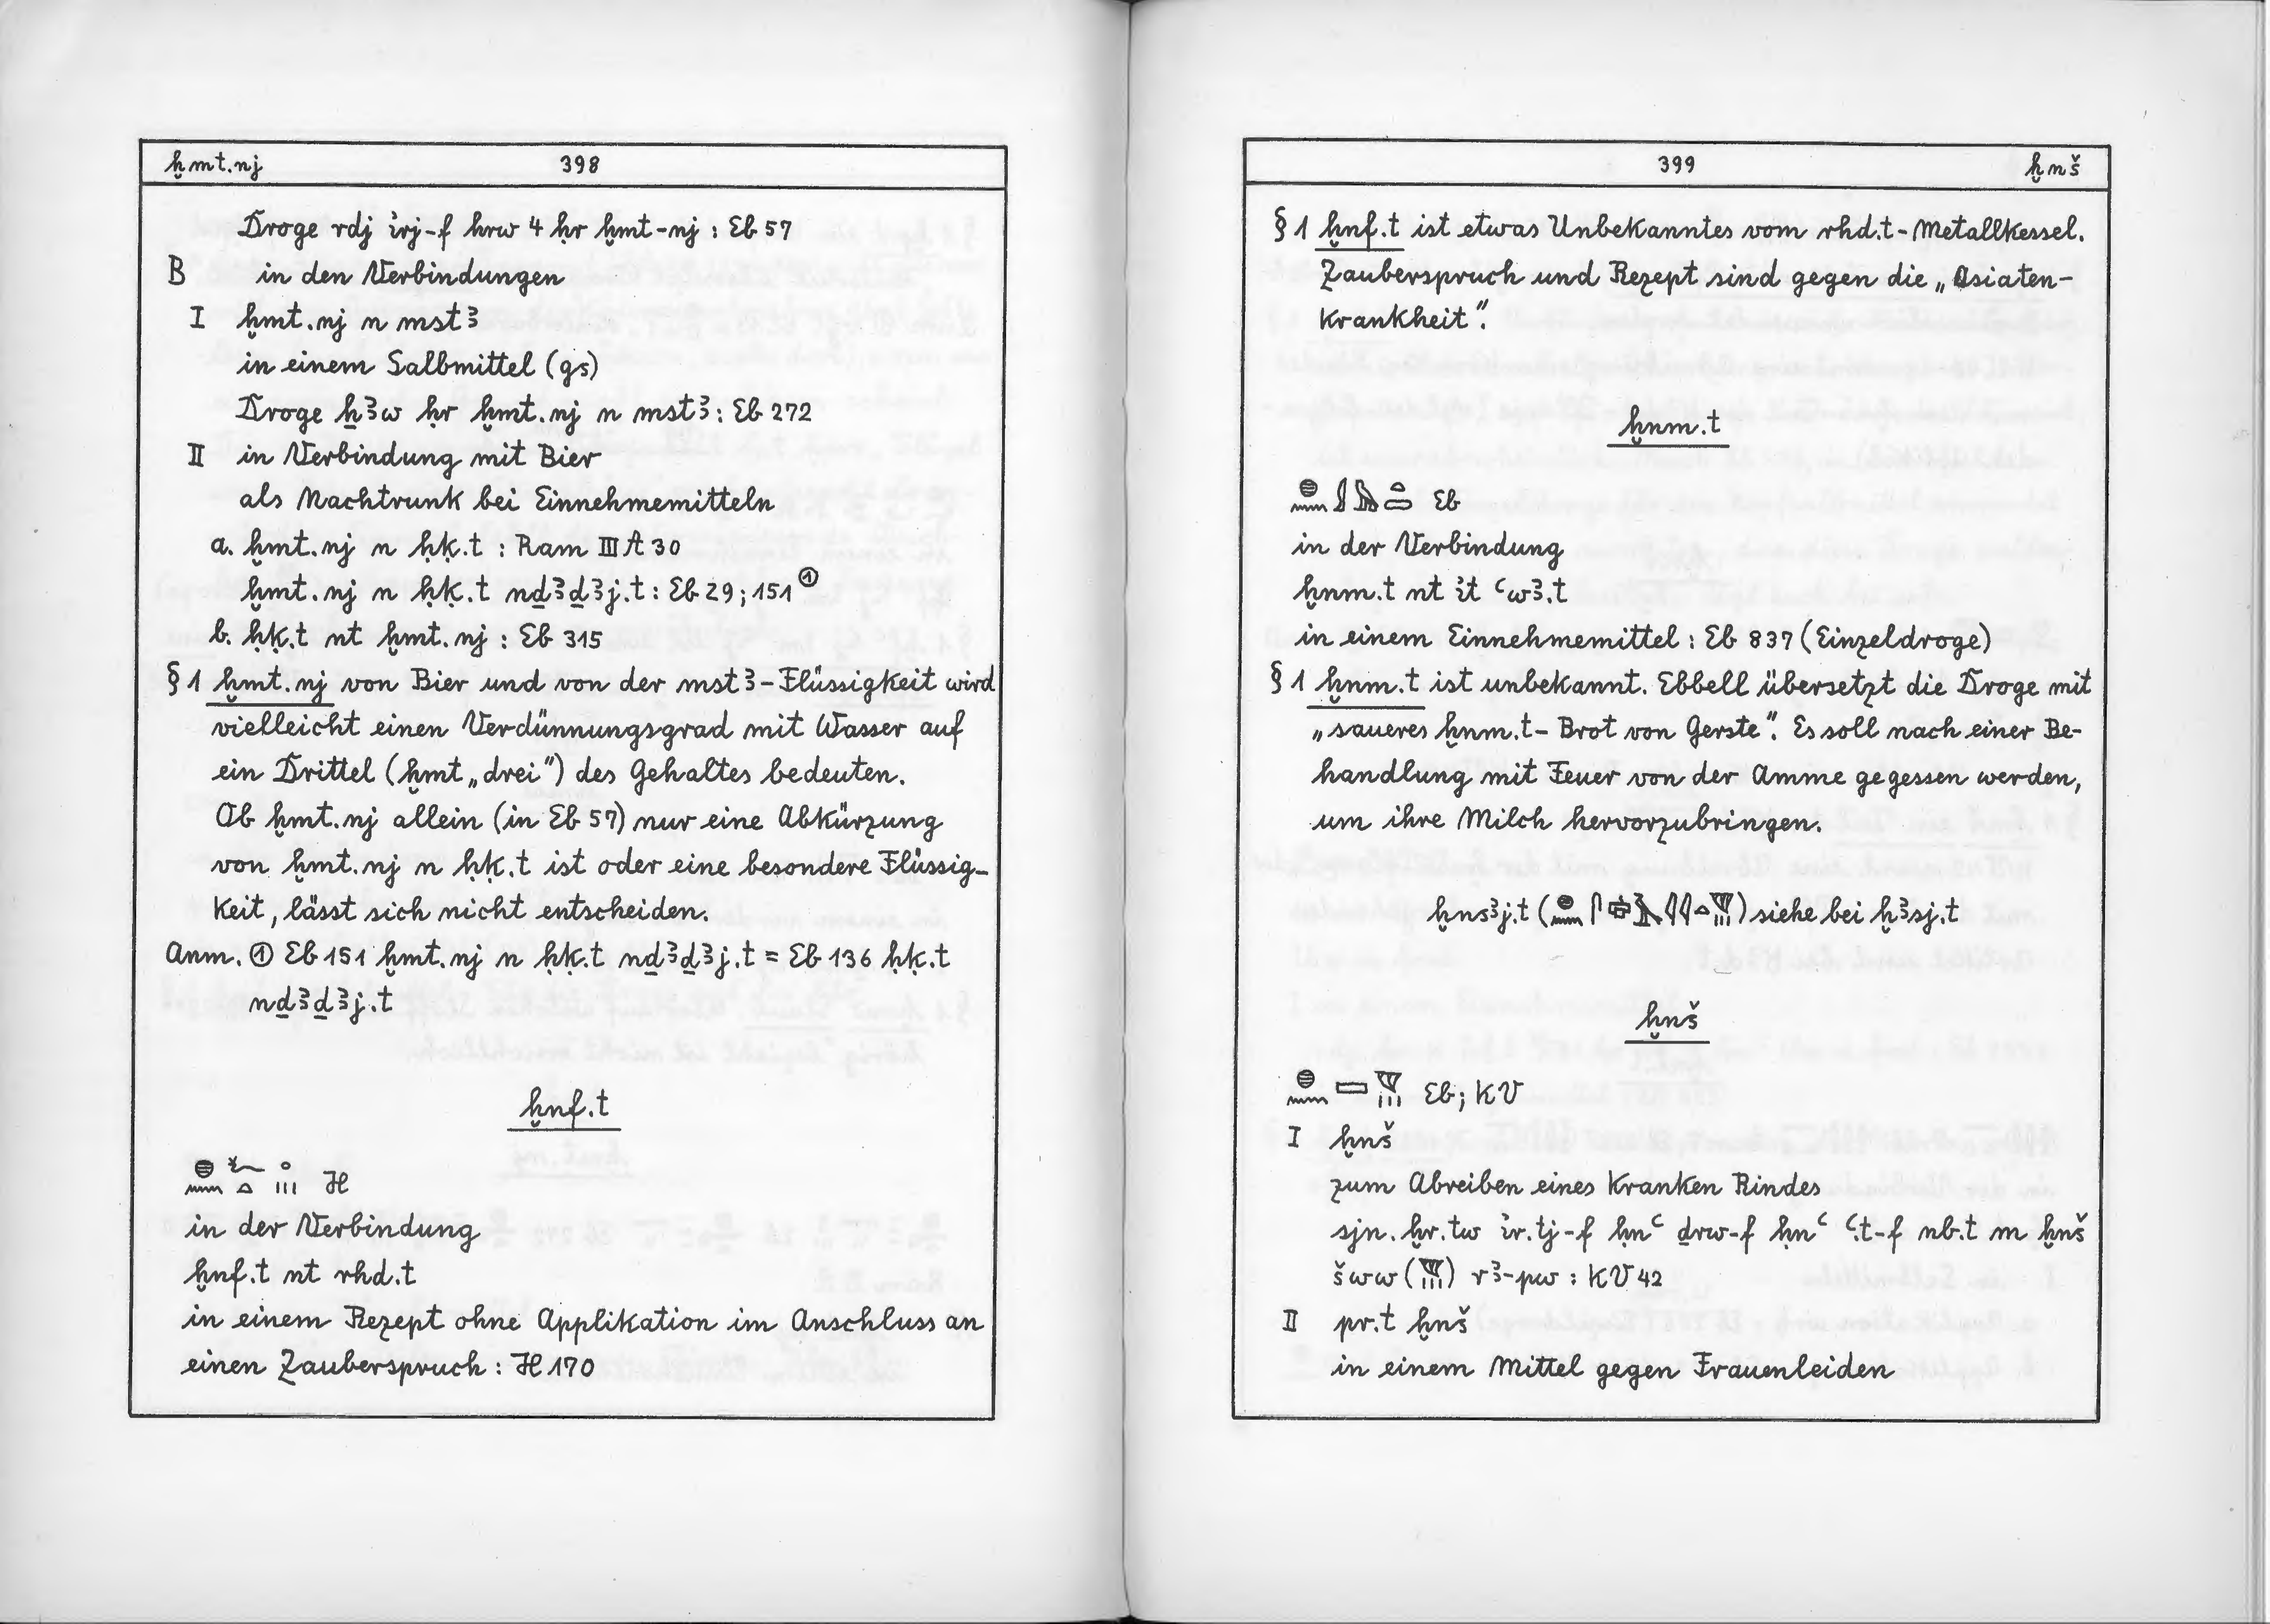 ḫmt.nj 398
Droge rdj i҆rj-f hrw 4 ḥr ḫmt-nj : Eb 57
B in den Verbindungen
I ḫmt.nj n mstꜣ
in einem Salbmittel (gs)
Droge ẖꜣw ḥr ḫmt.nj n mstꜣ : Eb 272
II in Verbindung mit Bier
als Nachtrunk bei Einnehmemitteln
a. ḫmt.nj n ḥḳ.t : Ram III A 30
ḫmt.nj n ḥḳ.t nḏꜣḏꜣj.t : Eb 29; 151 ①
b. ḥḳ.t nt ḫmt.nj : Eb 315
§ 1 ḫmt.nj von Bier und von der mstꜣ-Flüssigkeit wird
vielleicht einen Verdünnungsgrad mit Wasser auf
ein Drittel (ḫmt „drei") des Gehaltes bedeuten.
Ob ḫmt.nj allein (in Eb 57) nur eine Abkürzung
von ḫmt.nj n ḥḳ.t ist oder eine besondere Flüssig-
keit, lässt sich nicht entscheiden.
Anm. ① Eb 151 ḫmt.nj n ḥḳ.t nḏꜣḏꜣj.t = Eb 136 ḥḳ.t
nḏꜣḏꜣj.t
ḫnf.t
𓐍𓈖𓆑𓏏𓈒𓏥 H
in der Verbindung
ḫnf.t nt rhd.t
in einem Rezept ohne Applikation im Anschluss an
einen Zauberspruch : H 170
399 ḫnš
§ 1 ḫnf.t ist etwas Unbekanntes vom rhd.t-Metallkessel.
Zauberspruch und Rezept sind gegen die „Asiaten-
krankheit".
ḫnm.t
Eb
in der Verbindung
ḫnm.t nt i҆t ꜥwꜣ.t
in einem Einnehmemittel : Eb 837 (Einzeldroge)
§ 1 ḫnm.t ist unbekannt. Ebbell übersetzt die Droge mit
„saueres ḫnm.t-Brot von Gerste". Es soll nach einer Be-
handlung mit Feuer von der Amme gegessen werden,
um ihre Milch hervorzubringen.
ḫnsꜣj.t () siehe bei ḫꜣsj.t
ḫnš
𓐍𓈖𓈙𓆰𓏥 Eb; KV
I ḫnš
zum Abreiben eines kranken Rindes
sjn.ḫr.tw i҆r.tj-f ḥnꜥ ḏrw-f ḥnꜥ ꜥ.t-f nb.t m ḫnš
šww (𓆰𓏥) rꜣ-pw : KV 42
II pr.t ḫnš
in einem Mittel gegen Frauenleiden